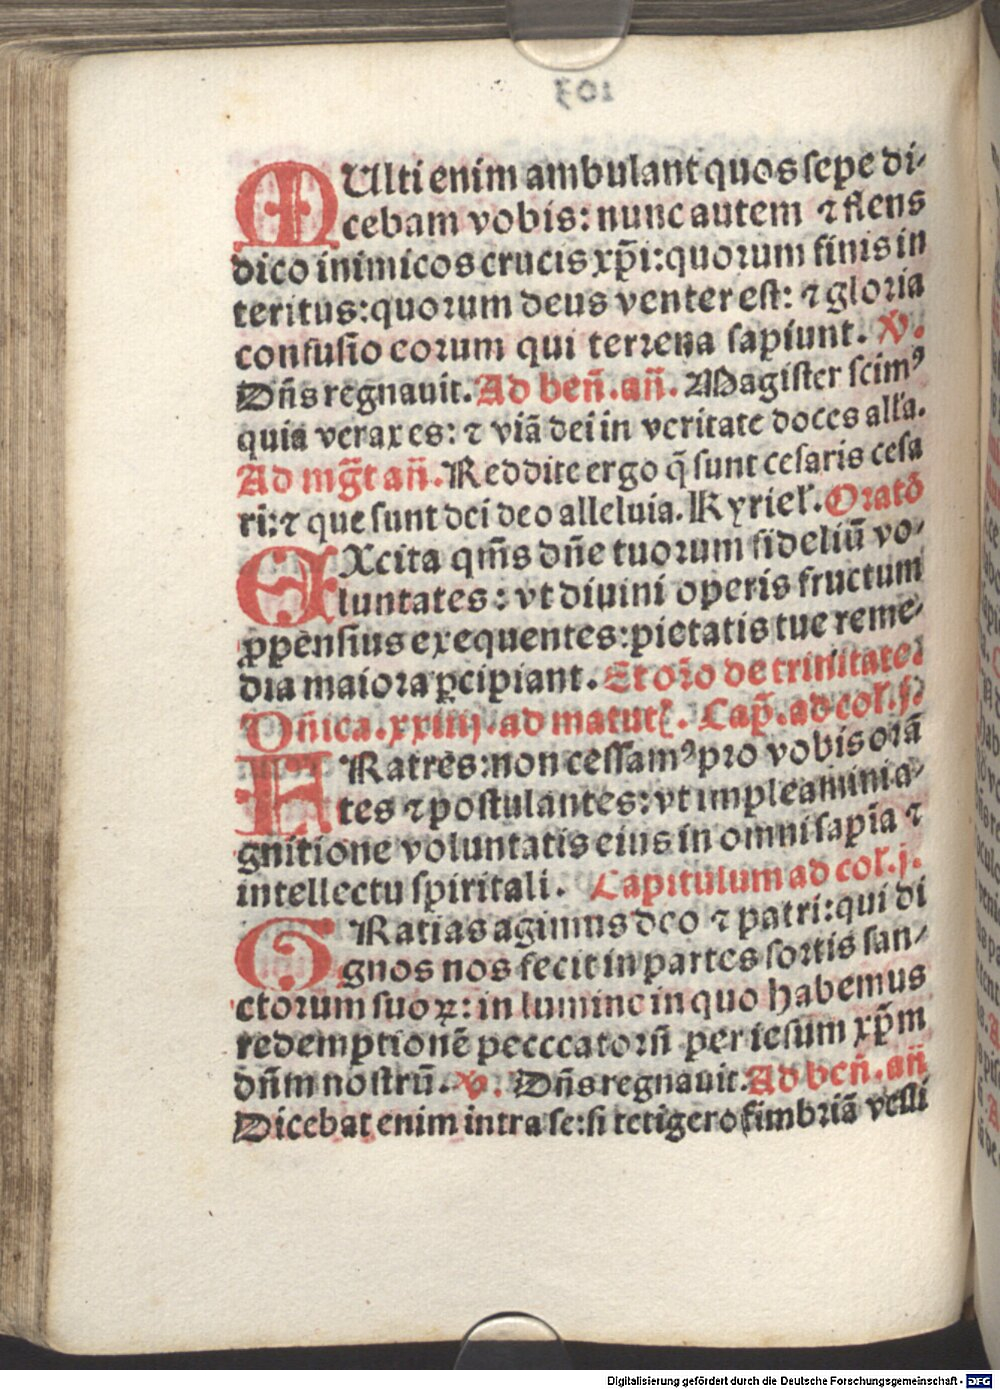 MUlti enim ambulant quos sepe di-
cebam vobis: nunc autem ⁊ flens
dico inimicos crucis xp̄i: quorum finis in
teritus: quorum deus venter est: ⁊ gloria
confusio eorum qui terrena sapiunt. V.
Dn̄s regnauit. Ad ben̄. an̄. Magister scimꝰ
quia verax es: ⁊ viā dei in veritate doces all'a.
Ad mḡt an̄. Reddite ergo q̄ sunt cesaris cesa
ri: ⁊ que sunt dei deo alleluia. Kyriel'. Oratō
EXcita qm̄s dn̄e tuorum fideliū vo-
luntates: vt diuini operis fructum
ꝓpensius exequentes: pietatis tue reme-
dia maiora ꝑcipiant. Et orō de trinitate.
Dn̄ica. xxiiij. ad matut̄. Cap̄. ad col'. j.
FRatres: non cessamꝰ pro vobis orā
tes ⁊ postulantes: vt impleamini a-
gnitione voluntatis eius in omni sapia ⁊
intellectu spiritali. Capitulum ad col'. j.
GRatias agimus deo ⁊ patri: qui di
gnos nos fecit in partes sortis san-
ctorum suoꝝ: in lumine in quo habemus
redemptionē pecccatorū per iesum xp̄m
dn̄m nostrū. V. Dn̄s regnauit. Ad ben̄. an̄
Dicebat enim intra se: si tetigero fimbriā vesti
Digitalisierung gefördert durch die Deutsche Forschungsgemeinschaft - DFG